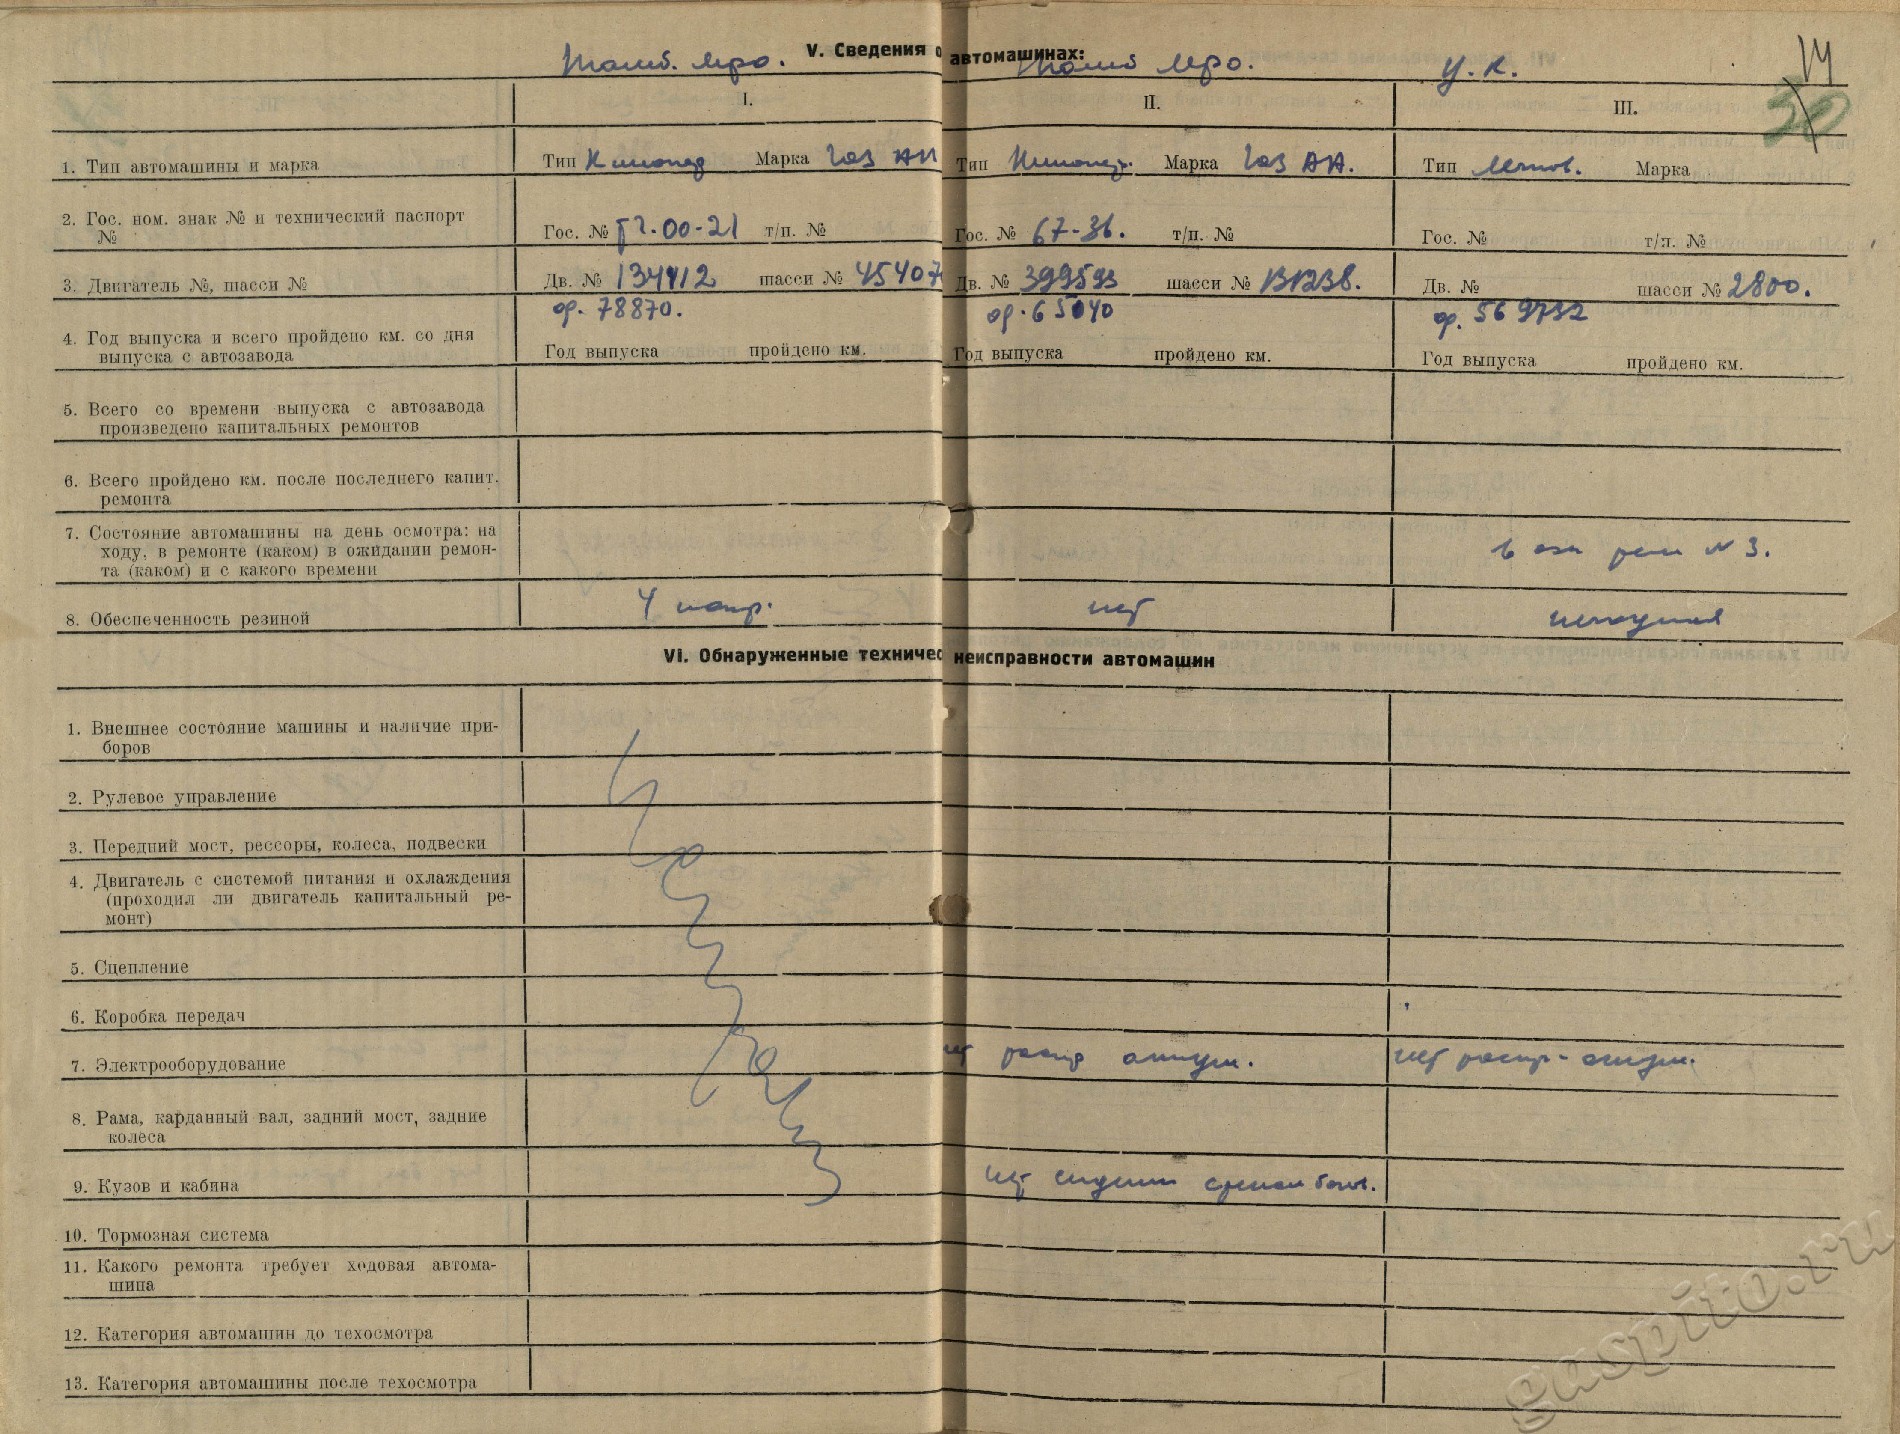 V. Сведения о автомашинах:
У. К.
14
30
I. II. III.
1. Тип автомашины и марка Тип Марка Газ АА Тип Марка Газ АА. Тип Легков. Марка
2. Гос. ном. знак № и технический паспорт
№ Гос. № 00-21 т/п. № Гос. № 67-36. т/п. № Гос. № т/п. №
3. Двигатель №, шасси № Дв. № 134412 шасси № 45407 Дв. № 399593 шасси № Дв. № шасси № 2800.
ор. 78870. ор. 65040 ор. 569732
4. Год выпуска и всего пройдено км. со дня
выпуска с автозавода Год выпуска пройдено км. Год выпуска пройдено км. Год выпуска пройдено км.
5. Всего со времени выпуска с автозавода
произведено капитальных ремонтов
6. Всего пройдено км. после последнего капит.
ремонта
7. Состояние автомашины на день осмотра: на
ходу, в ремонте (каком) в ожидании ремон-
та (каком) и с какого времени в ож рем № 3.
8. Обеспеченность резиной 4 нет
VI. Обнаруженные техничес неисправности автомашин
1. Внешнее состояние машины и наличие при-
боров
2. Рулевое управление
3. Передний мост, рессоры, колеса, подвески
4. Двигатель с системой питания и охлаждения
(проходил ли двигатель капитальный ре-
монт)
5. Сцепление
6. Коробка передач
7. Электрооборудование нет аккум. нет аккум.
8. Рама, карданный вал, задний мост, задние
колеса
9. Кузов и кабина нет сидения
10. Тормозная система
11. Какого ремонта требует ходовая автома-
шина
12. Категория автомашин до техосмотра
13. Категория автомашины после техосмотра
gaspito.ru